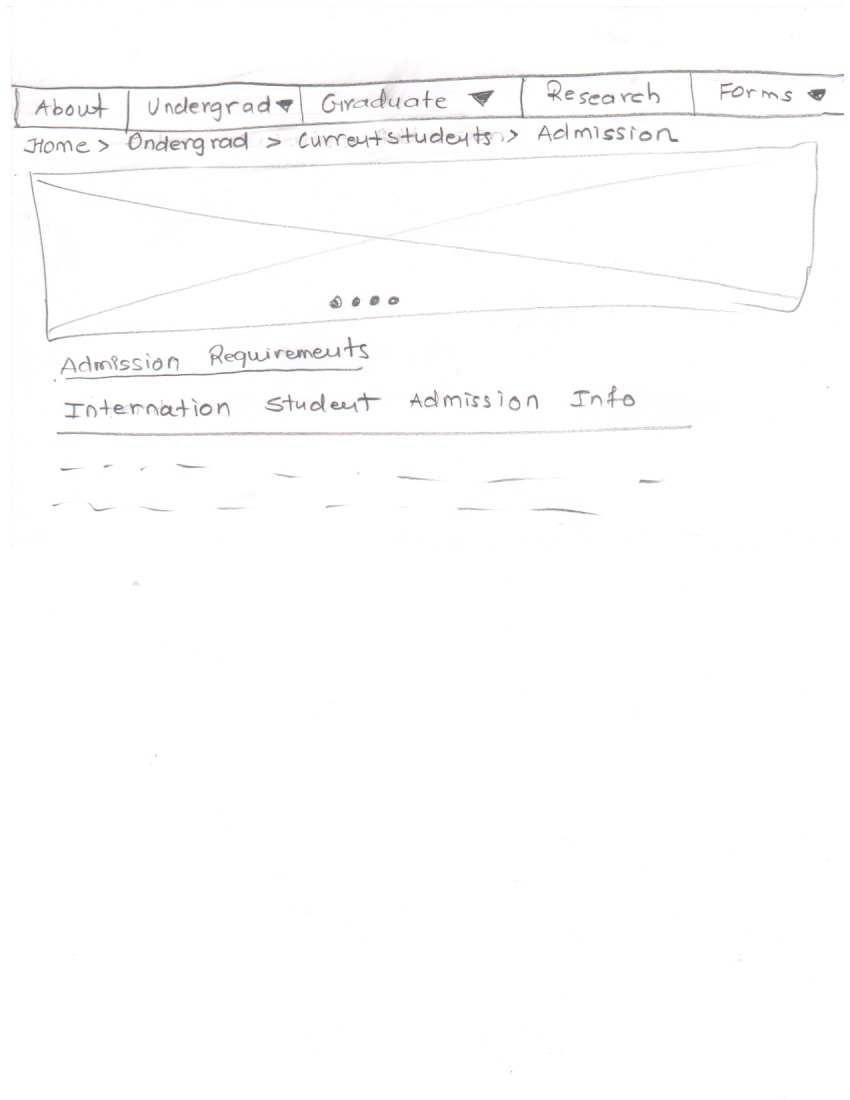 About Undergrad Graduate Research Forms
Home > Ondergrad > Currentstudents > Admission
Admission Requirements
Internation Student Admission Info